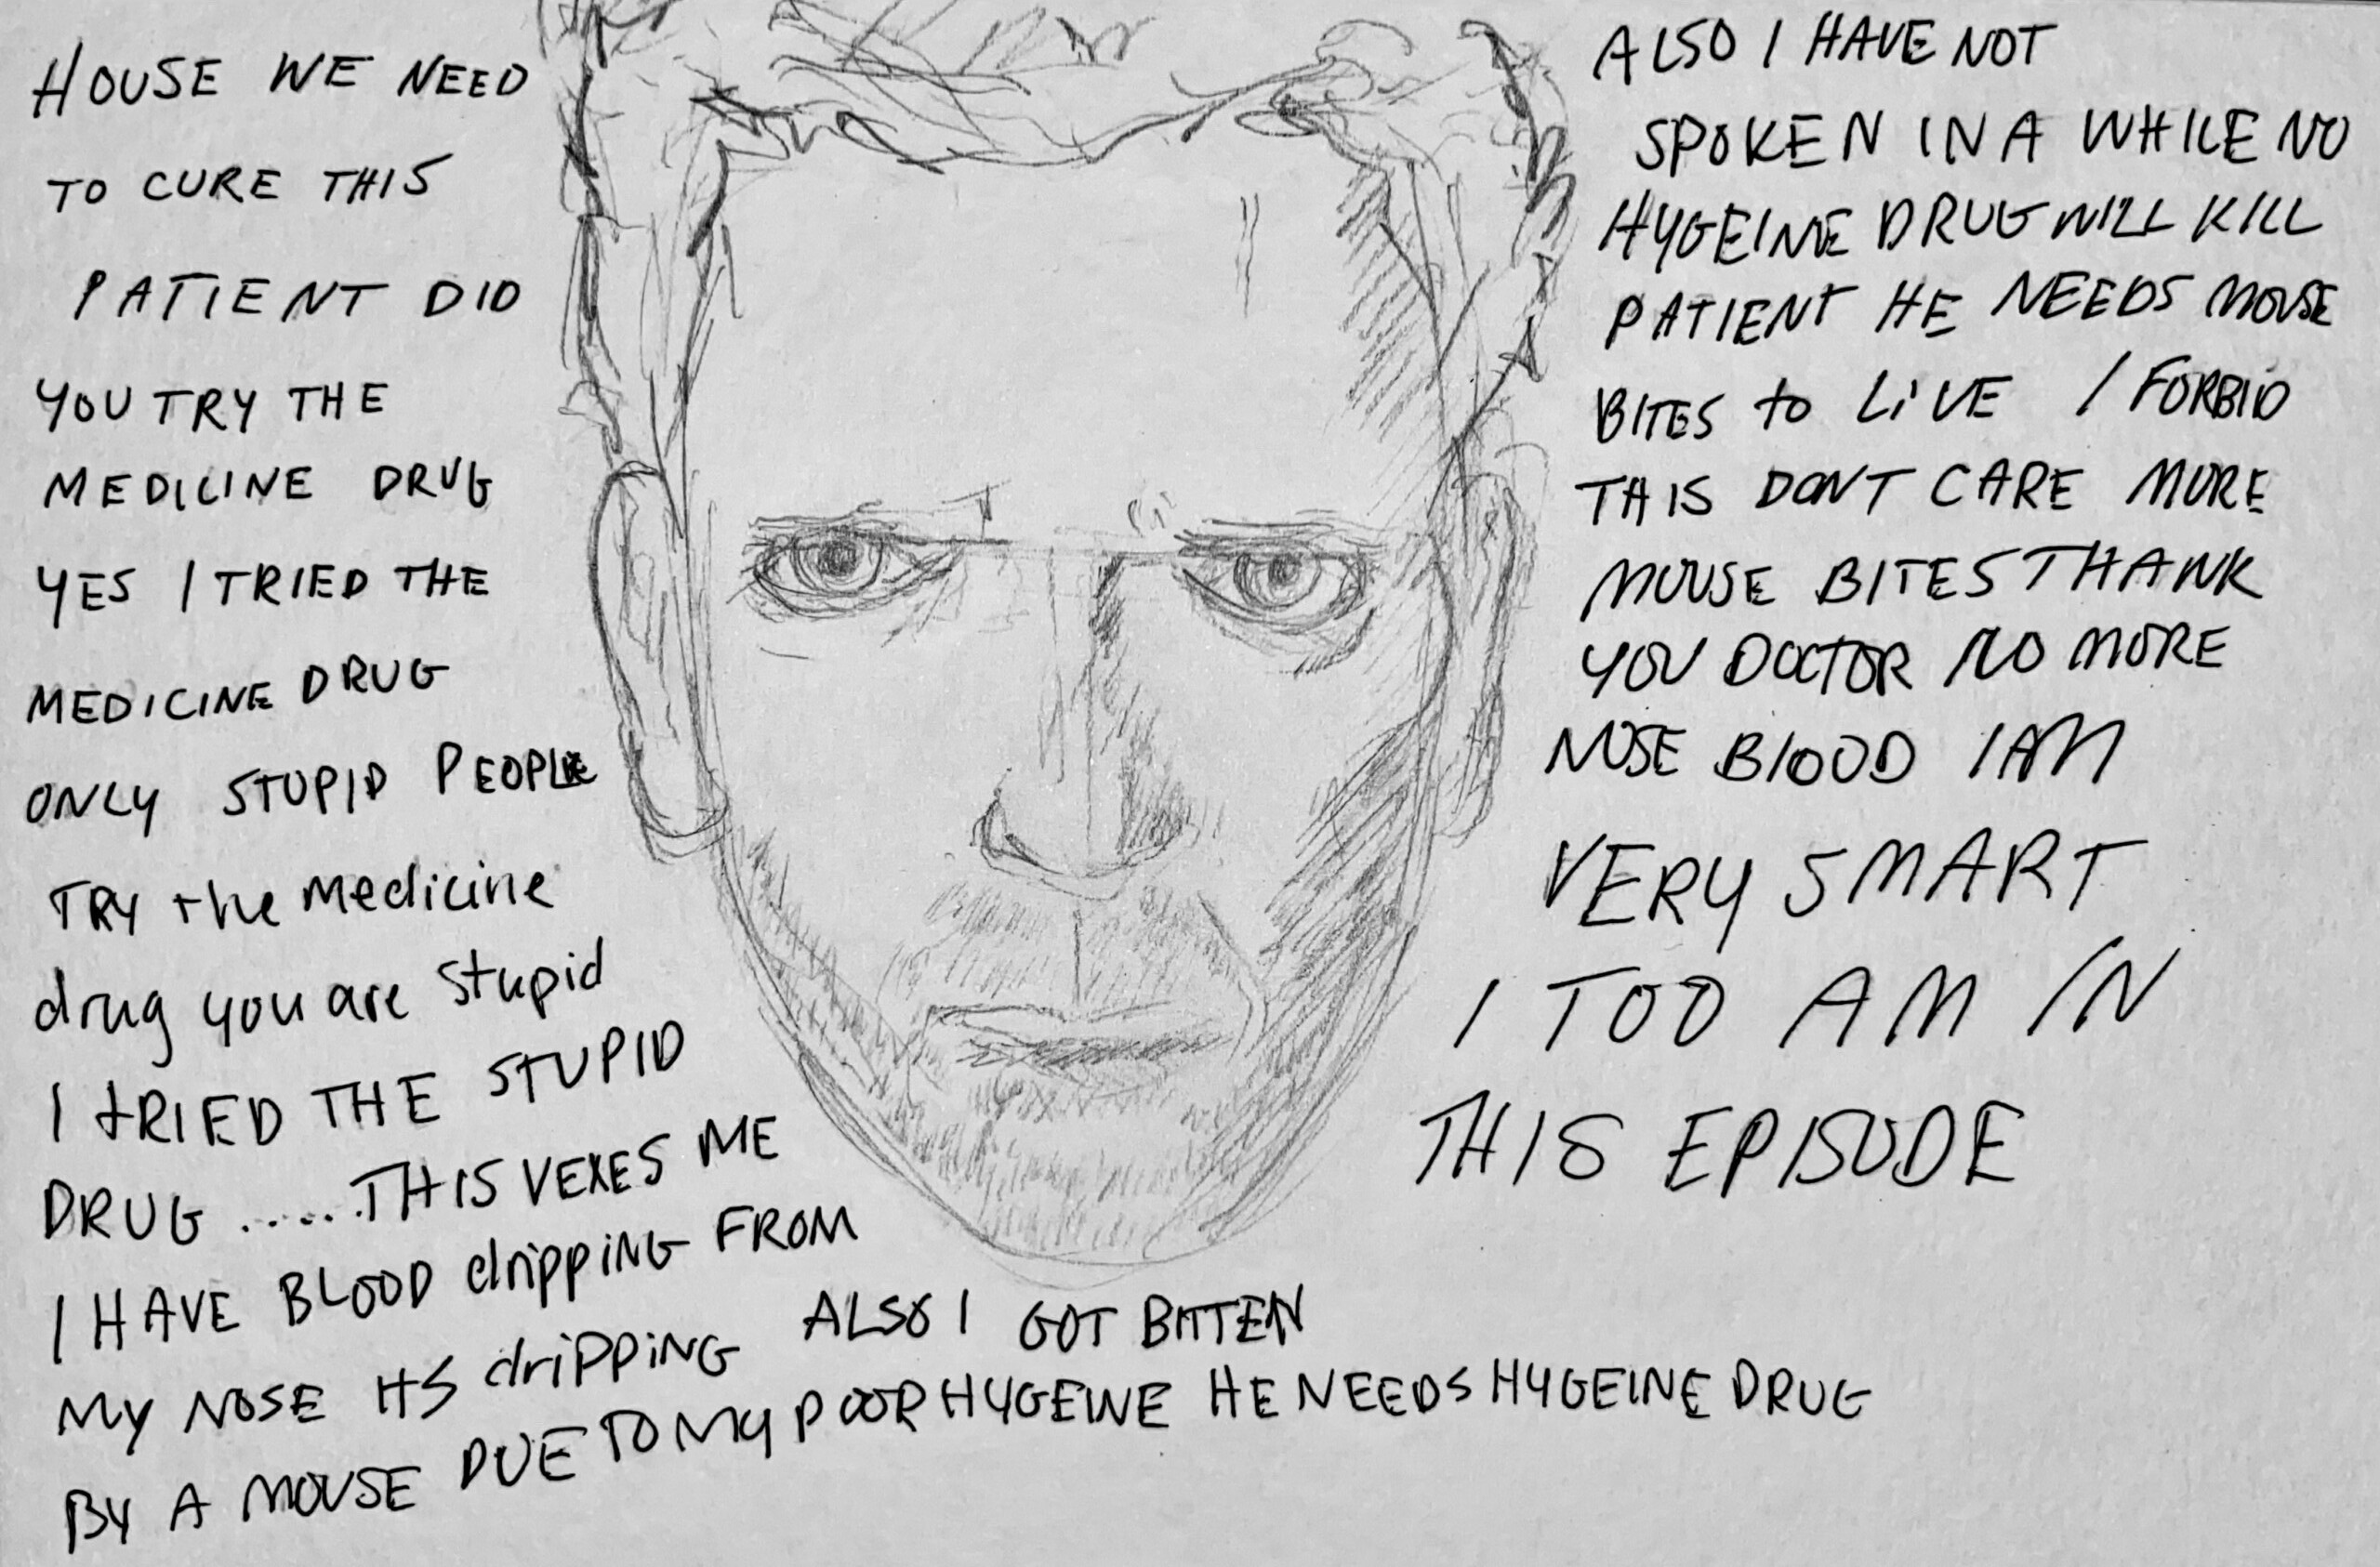 HOUSE WE NEED
TO CURE THIS
PATIENT DID
YOU TRY THE
MEDICINE DRUG
YES I TRIED THE
MEDICINE DRUG
ONLY STUPID PEOPLE
TRY the Medicine
drug you are stupid
I tRIED THE STUPID
DRUG ......THIS VEXES ME
I HAVE BLOOD dripping FROM
MY NOSE ITS dripping ALSO I GOT BITTEN
BY A MOUSE DUE TO MY POOR HYGEINE HE NEEDS HYGEINE DRUG
ALSO I HAVE NOT
SPOKEN IN A WHILE NO
HYGEINE DRUG WILL KILL
PATIENT HE NEEDS MOUSE
BITES to LiVE I FORBID
THIS DONT CARE MORE
MOUSE BITES THANK
YOU DOCTOR NO MORE
NOSE BLOOD I AM
VERY SMART
I TOO AM IN
THIS EPISODE